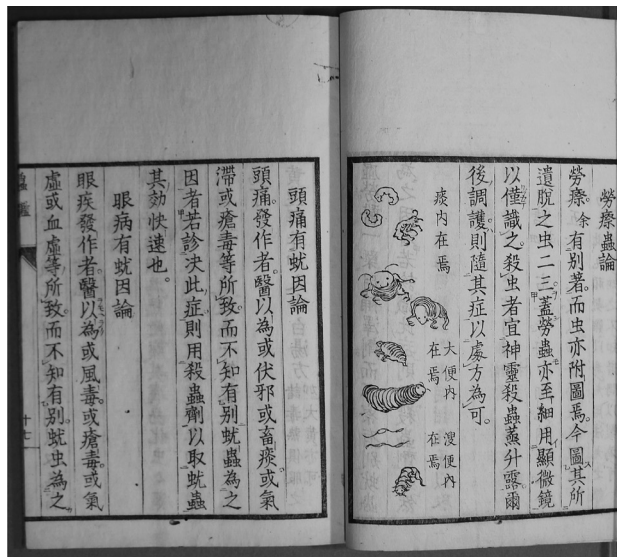 勞瘵蟲論
勞瘵。余有別著。而虫亦附圖焉。今圖其所
遺脫之虫二三。蓋勞蟲亦至細。用顯微鏡
以僅識之。殺虫者宜神靈殺蟲蒸升露。爾
後調護。則隨其症以處方為可。
痰內在焉
大便內在焉
溲便內在焉
頭痛有蚘因論
頭痛。發作者。醫以為或伏邪或畜痰或氣
滯或瘡毒等所致。而不知有別蚘蟲為之
因者。若診决此症。則用殺蟲劑以取蚘蟲
其効快速也。
眼病有蚘因論
眼疾發作者。醫以為或風毒。或瘡毒。或氣
虛或血虛等所致。而不知有別。蚘虫為之。
十七